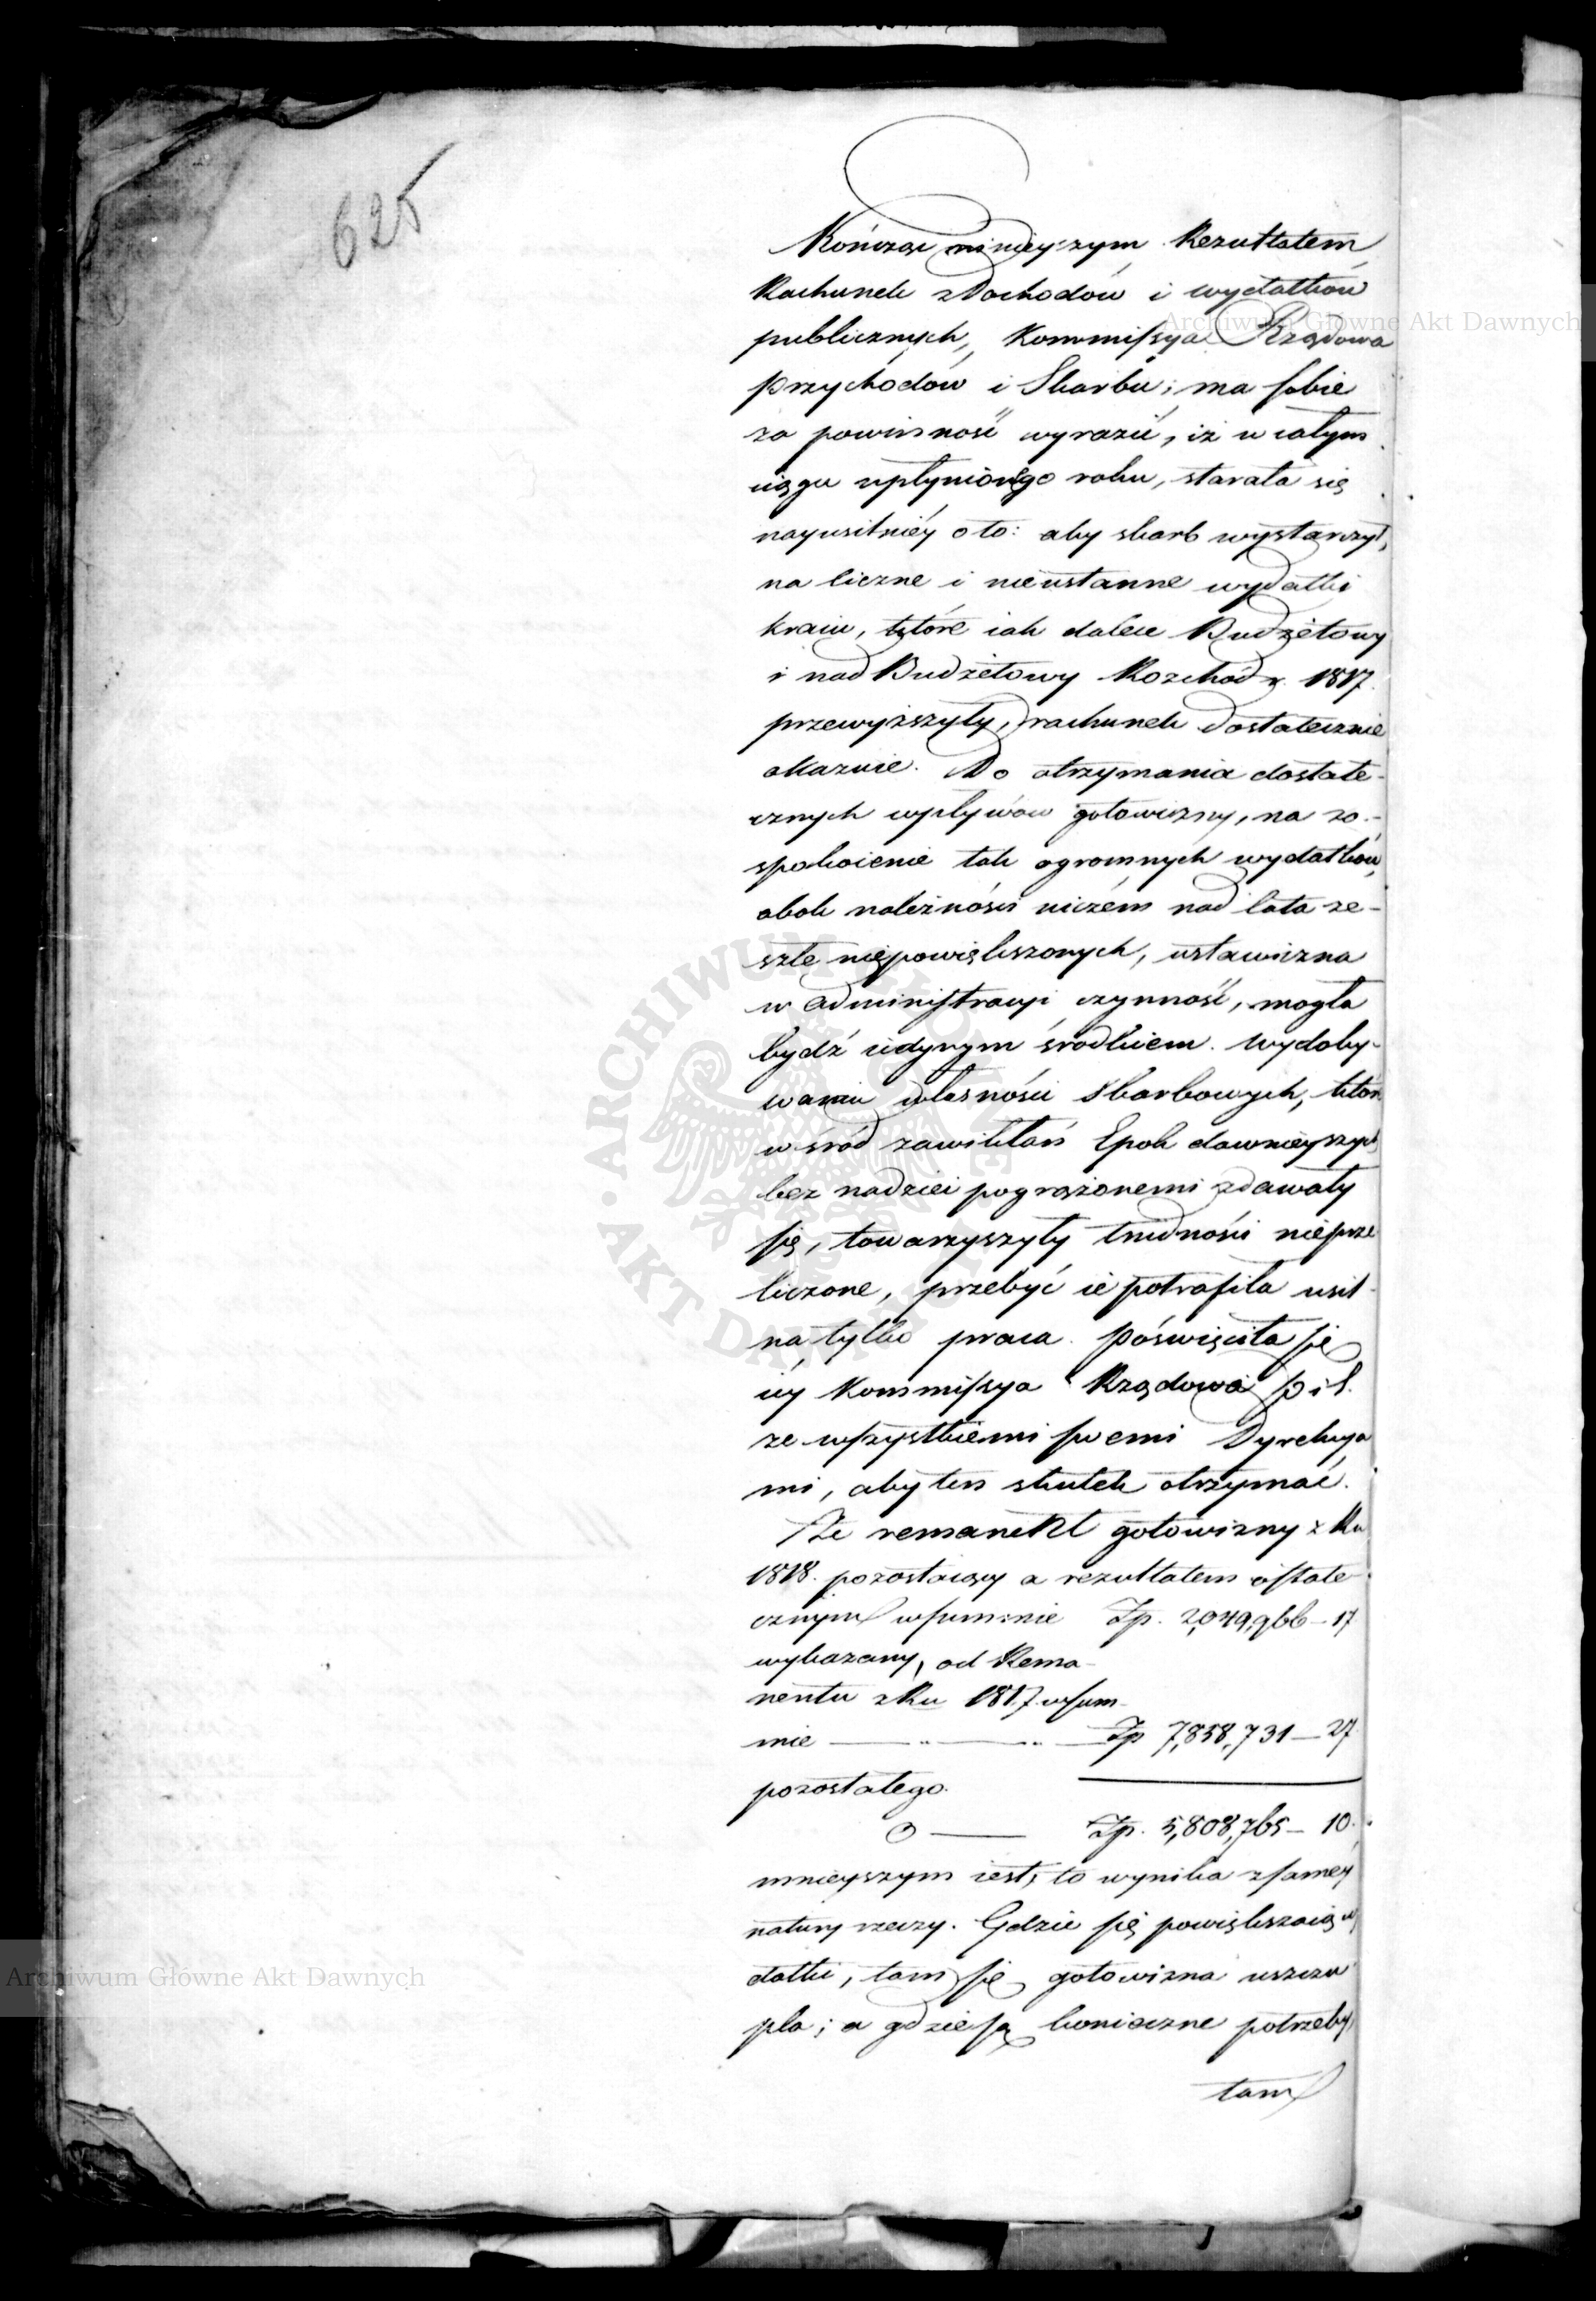 625
Kończąc ninieyszym Rezultatem
Rachunek z Dochodów i wydatków
publicznych, Kommissya Rządowa
Przychodów i Skarbu; ma sobie
za powinność wyrazić, iż w całym
ciągu upłynionego roku, starała się
nayusilniéy o to: aby skarb wystarczył,
na liczne i nieustanne wydatki
kraiu, które iak dalece Budżetowy
i nad Budżetowy Rozchód r. 1817.
przewyższyły, rachunek dostatecznie
okazuie. Do otrzymania dostate-
cznych wpływów gotowizny, na za-
spokoienie tak ogromnych wydatków,
obok należności niczém nad lata ze-
szłe niepowiększonych, ustawiczna
w administracyi czynność, mogła
bydź iedynym środkiem. Wydoby-
waniu własności Skarbowych, któr
wśród zawikłań Epok dawnieyszych
bez nadziei pogrążonemi zdawały
się, towarzyszyły trudności nieprze
liczone, przebyć ie potrafiła usil-
na tylko praca. Poświęciła się
iéy Kommissya Rządowa P i S.
ze wszystkiemi swemi Dyrekcya
mi, aby ten skutek otrzymać.
Że remanent gotowizny z Ru
1818. pozostaiący a rezultatem ostate-
cznym w summie Zp. 2,049,966 – 17
wykazany, od Rema-
nentu z Ru 1817 w sum-
mie — „ — „ — Zp 7,858,731 – 27.
pozostałego.
o — Zp. 5,808,765 – 10.
mnieyszym iest, to wynika z saméy
natury rzeczy. Gdzie się powiększaią wy
datki, tam się gotowizna uszczu
pla; a gdzie są konieczne potrzeby,
tam
Archiwum Główne Akt Dawnych
Archiwum Główne Akt Dawnych
ARCHIWUM GŁÓWNE AKT DAWNYCH · AKT DAWNYCH